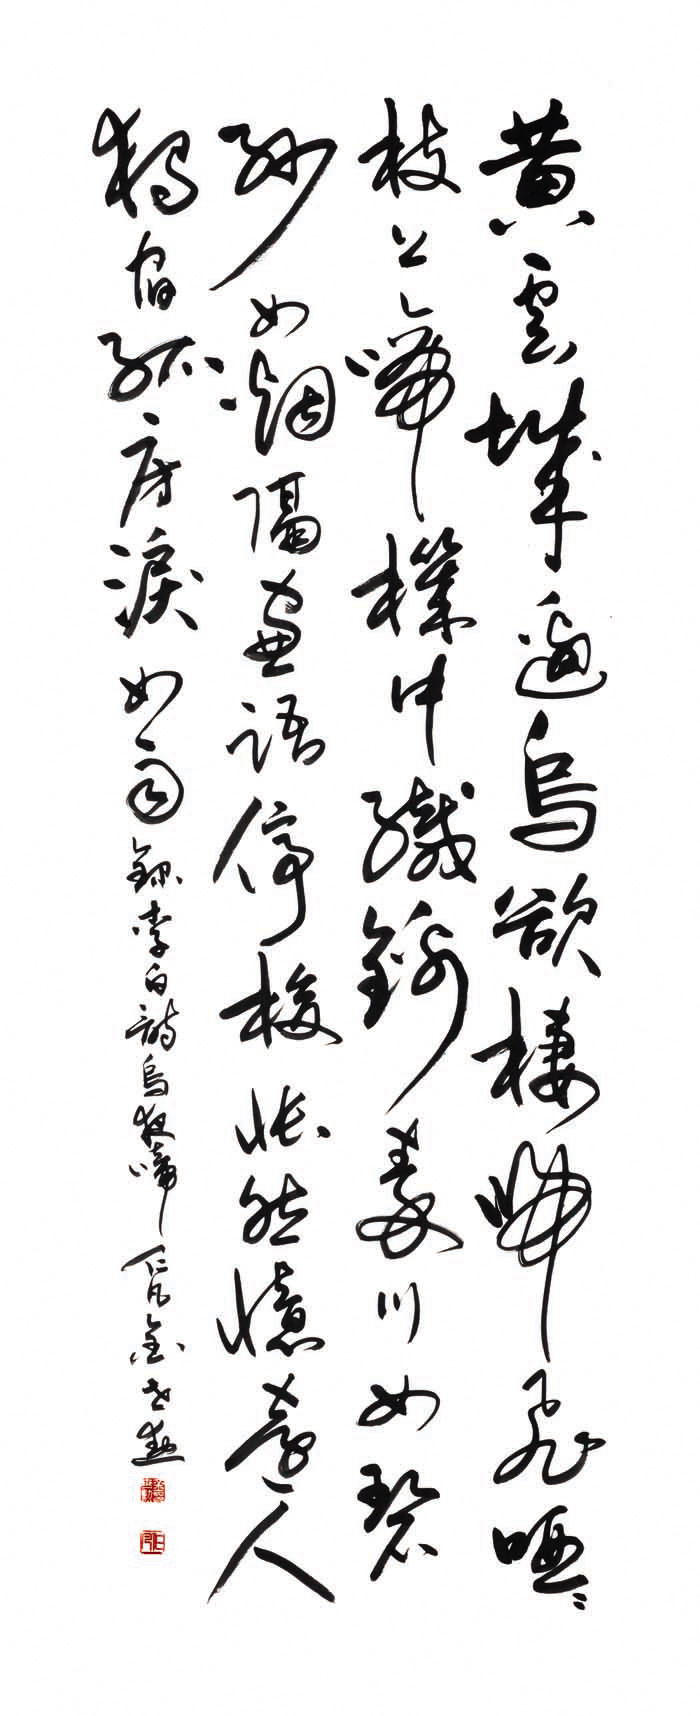 黃雲城邊烏欲棲歸飛啞々
枝上啼機中織錦秦川女碧
紗如烟隔窓語停梭悵然憶遠人
獨宿孤房淚如雨 錄李白詩烏夜啼 金